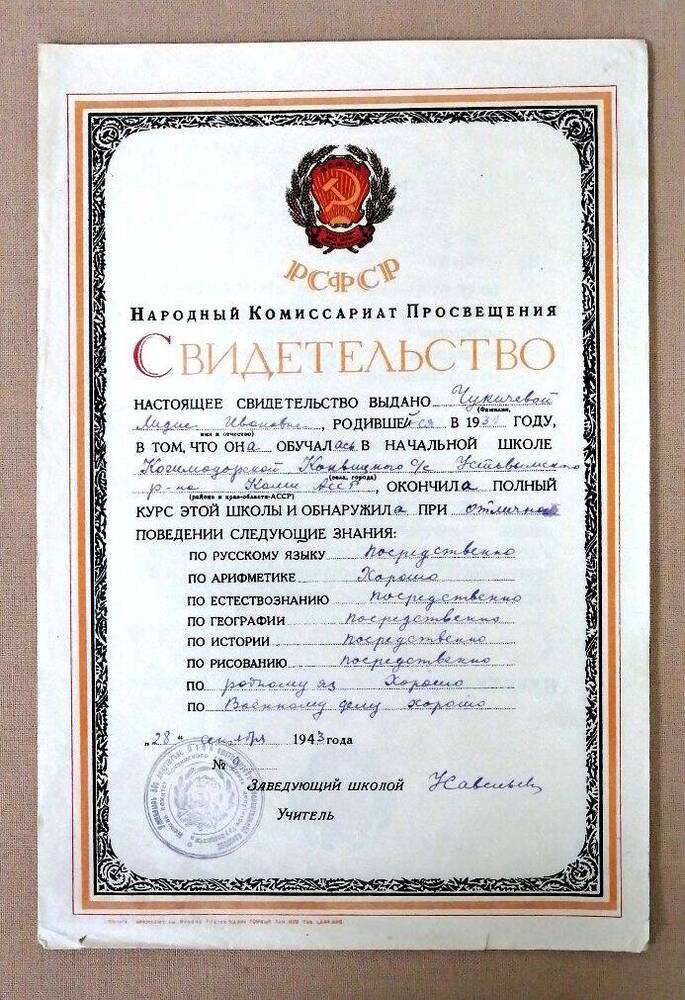 РСФСР
НАРОДНЫЙ КОМИССАРИАТ ПРОСВЕЩЕНИЯ
СВИДЕТЕЛЬСТВО
НАСТОЯЩЕЕ СВИДЕТЕЛЬСТВО ВЫДАНО Чукичевой
(Фамилия,
Лидие Ивановне, РОДИВШЕЙСЯ В 1931 ГОДУ,
имя и отчество)
В ТОМ, ЧТО ОНА ОБУЧАЛАСЬ В НАЧАЛЬНОЙ ШКОЛЕ
с/с Устьвымского
(села, города)
р-на Коми АССР, ОКОНЧИЛА ПОЛНЫЙ
(района и края-области-АССР)
КУРС ЭТОЙ ШКОЛЫ И ОБНАРУЖИЛА ПРИ отличном
ПОВЕДЕНИИ СЛЕДУЮЩИЕ ЗНАНИЯ:
ПО РУССКОМУ ЯЗЫКУ посредственно
ПО АРИФМЕТИКЕ Хорошо
ПО ЕСТЕСТВОЗНАНИЮ посредственно
ПО ГЕОГРАФИИ посредственно
ПО ИСТОРИИ посредственно
ПО РИСОВАНИЮ посредственно
ПО родному яз Хорошо
ПО Военному делу хорошо
„28" сентября 1943 года
№
ЗАВЕДУЮЩИЙ ШКОЛОЙ
УЧИТЕЛЬ